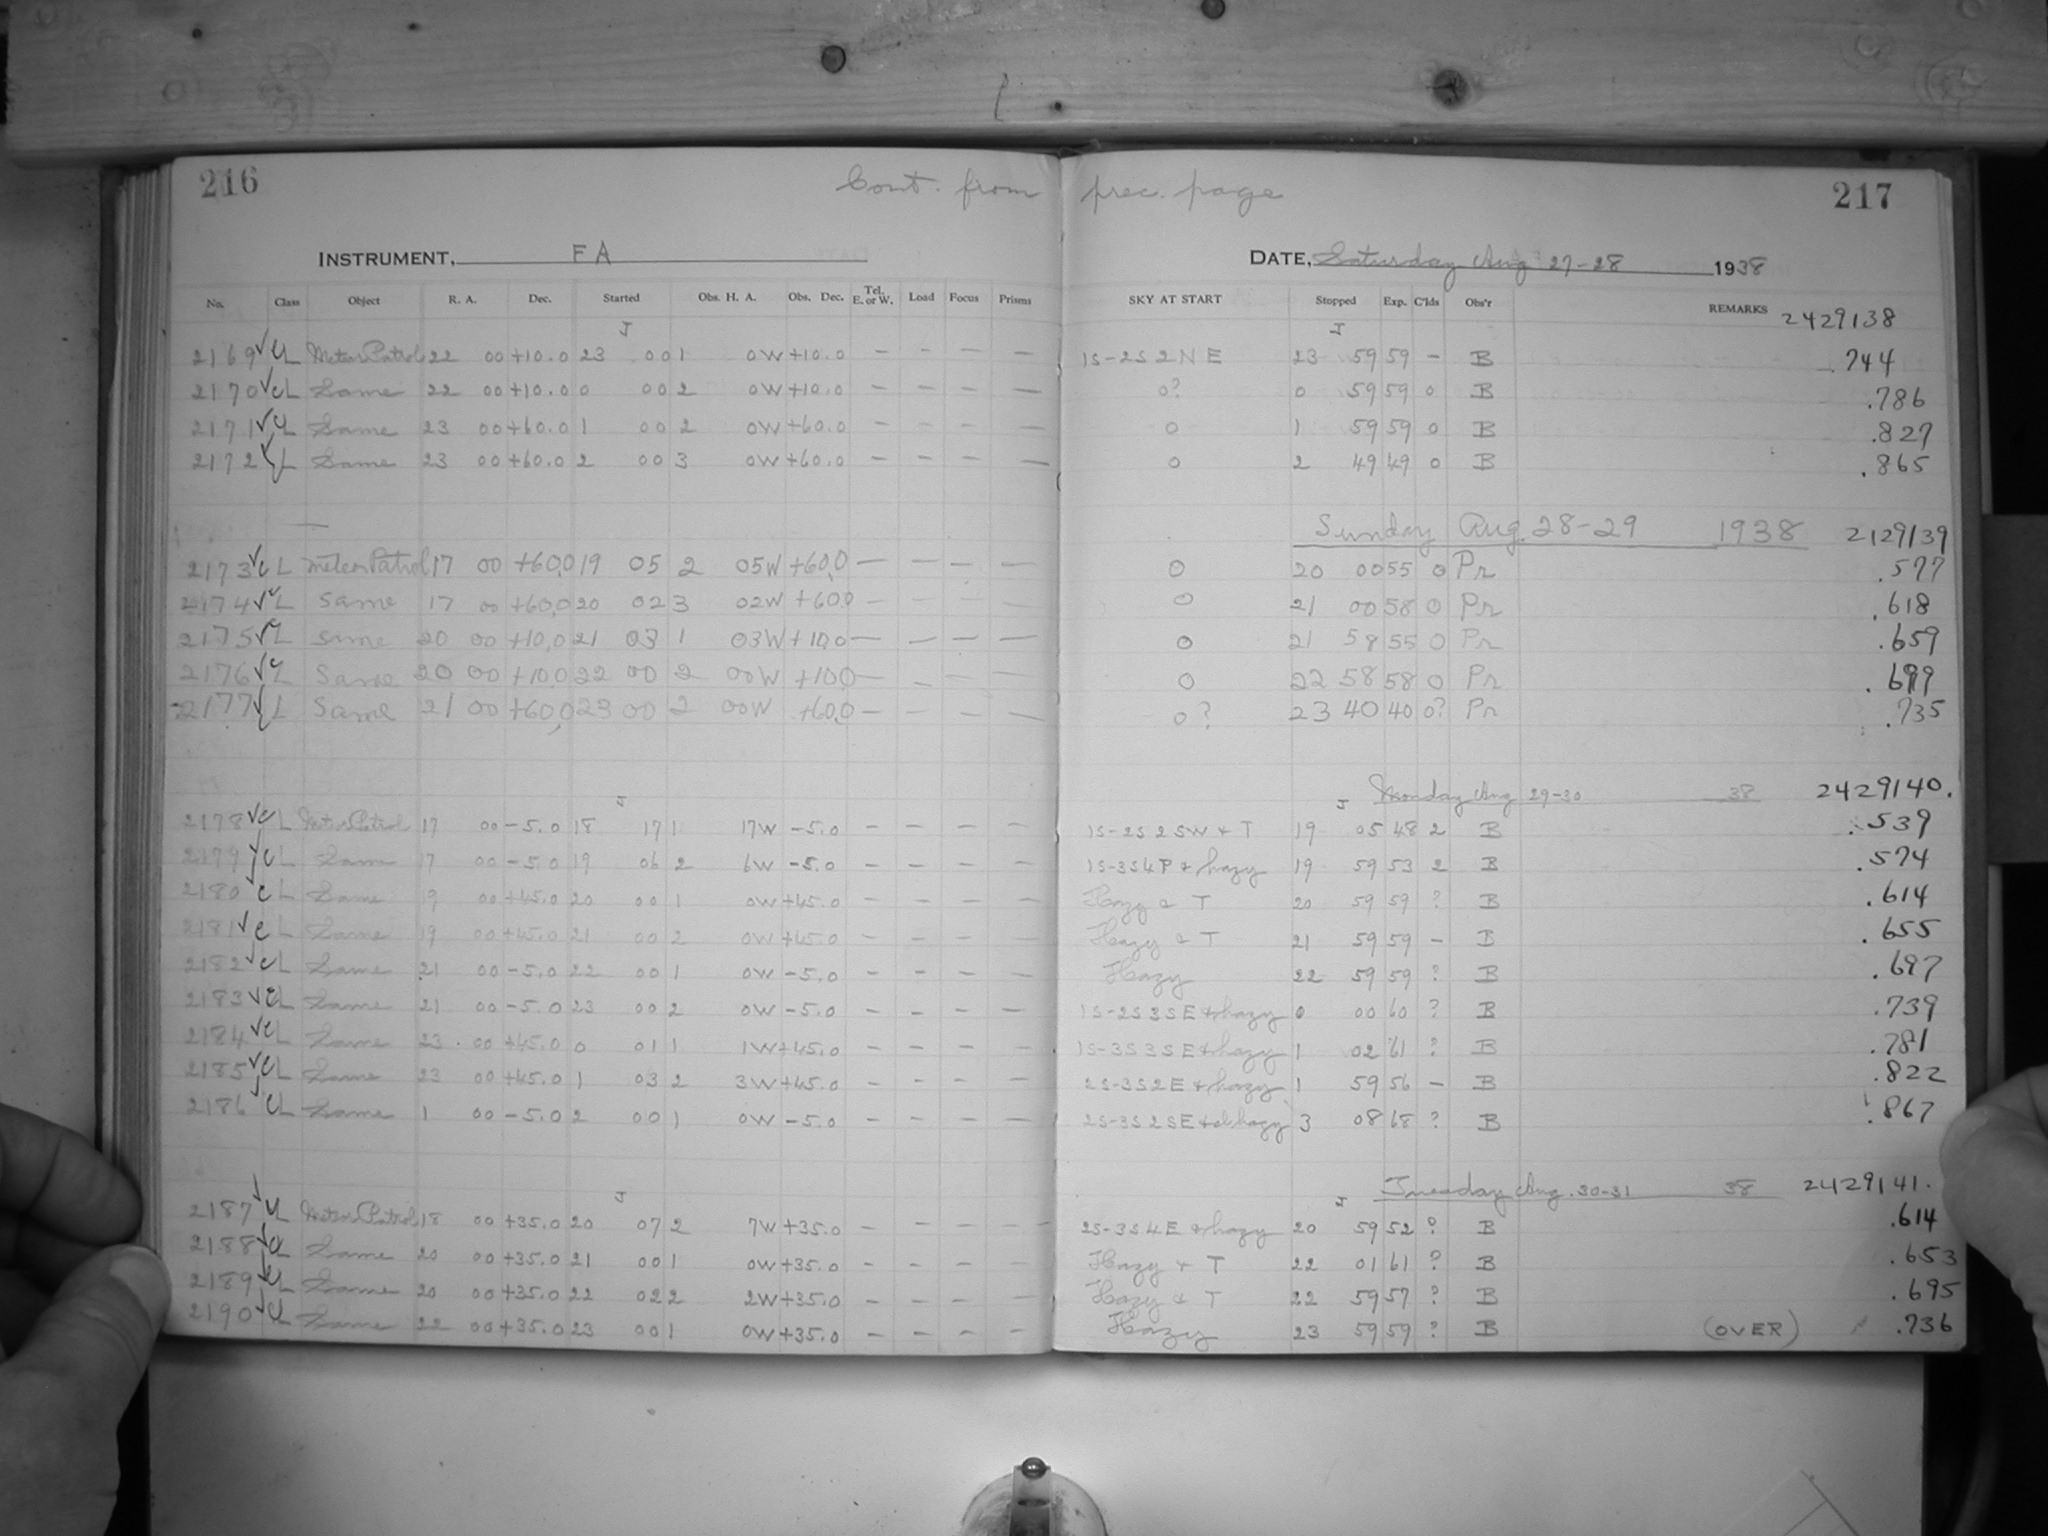 216 Cont. from prec. page 217
INSTRUMENT, FA DATE, Saturday Aug 27-28 1938
No. Class Object R. A. Dec. Started Obs. H. A. Obs. Dec. Tel. E. or W. Load Focus Prisms SKY AT START Stopped Exp. C'lds Obs'r REMARKS 2429138
J J
2169 √ CL Meteor Patrol 22 00 +10.0 23 00 1 0W +10.0 — — — — 1S-2S 2NE 23 59 59 — B .744
2170 √ CL Same 22 00 +10.0 0 00 2 0W +10.0 — — — — 0? 0 59 59 0 B .786
2171 √ CL Same 23 00 +60.0 1 00 2 0W +60.0 — — — — 0 1 59 59 0 B .827
2172 √ CL Same 23 00 +60.0 2 00 3 0W +60.0 — — — — 0 2 49 49 0 B .865
Sunday Aug. 28-29 1938 2129139
2173 √ CL Meteor Patrol 17 00 +60.0 19 05 2 05W +60.0 — — — — 0 20 00 55 0 Pr .577
2174 √ CL Same 17 00 +60.0 20 02 3 02W +60.0 — — — — 0 21 00 58 0 Pr .618
2175 √ CL Same 20 00 +10.0 21 03 1 03W +10.0 — — — — 0 21 58 55 0 Pr .659
2176 √ CL Same 20 00 +10.0 22 00 2 00W +10.0 — — — — 0 22 58 58 0 Pr .699
2177 √ CL Same 21 00 +60.0 23 00 2 00W +60.0 — — — — 0? 23 40 40 0? Pr .735
J J Monday Aug 29-30 38 2429140.
2178 √ CL Meteor Patrol 17 00 -5.0 18 17 1 17W -5.0 — — — — 1S-2S 2SW & T 19 05 48 2 B .539
2179 √ CL Same 17 00 -5.0 19 06 2 6W -5.0 — — — — 1S-3S 4P & hazy 19 59 53 2 B .574
2180 CL Same 19 00 +45.0 20 00 1 0W +45.0 — — — — Hazy & T 20 59 59 ? B .614
2181 √ CL Same 19 00 +45.0 21 00 2 0W +45.0 — — — — Hazy & T 21 59 59 — B .655
2182 √ CL Same 21 00 -5.0 22 00 1 0W -5.0 — — — — Hazy 22 59 59 ? B .697
2183 √ CL Same 21 00 -5.0 23 00 2 0W -5.0 — — — — 1S-2S 3SE & hazy 0 00 60 ? B .739
2184 √ CL Same 23 00 +45.0 0 01 1 1W +45.0 — — — — 1S-3S 3SE & hazy 1 02 61 ? B .781
2185 √ CL Same 23 00 +45.0 1 03 2 3W +45.0 — — — — 2S-3S 2E & hazy 1 59 56 — B .822
2186 √ CL Same 1 00 -5.0 2 00 1 0W -5.0 — — — — 2S-3S 2SE & hazy 3 08 68 ? B .867
J J Tuesday Aug. 30-31 38 2429141.
2187 √ CL Meteor Patrol 18 00 +35.0 20 07 2 7W +35.0 — — — — 2S-3S 4E & hazy 20 59 52 ? B .614
2188 √ CL Same 20 00 +35.0 21 00 1 0W +35.0 — — — — Hazy & T 22 01 61 ? B .653
2189 √ CL Same 20 00 +35.0 22 02 2 2W +35.0 — — — — Hazy & T 22 59 57 ? B .695
2190 √ CL Same 22 00 +35.0 23 00 1 0W +35.0 — — — — Hazy 23 59 59 ? B (OVER) .736